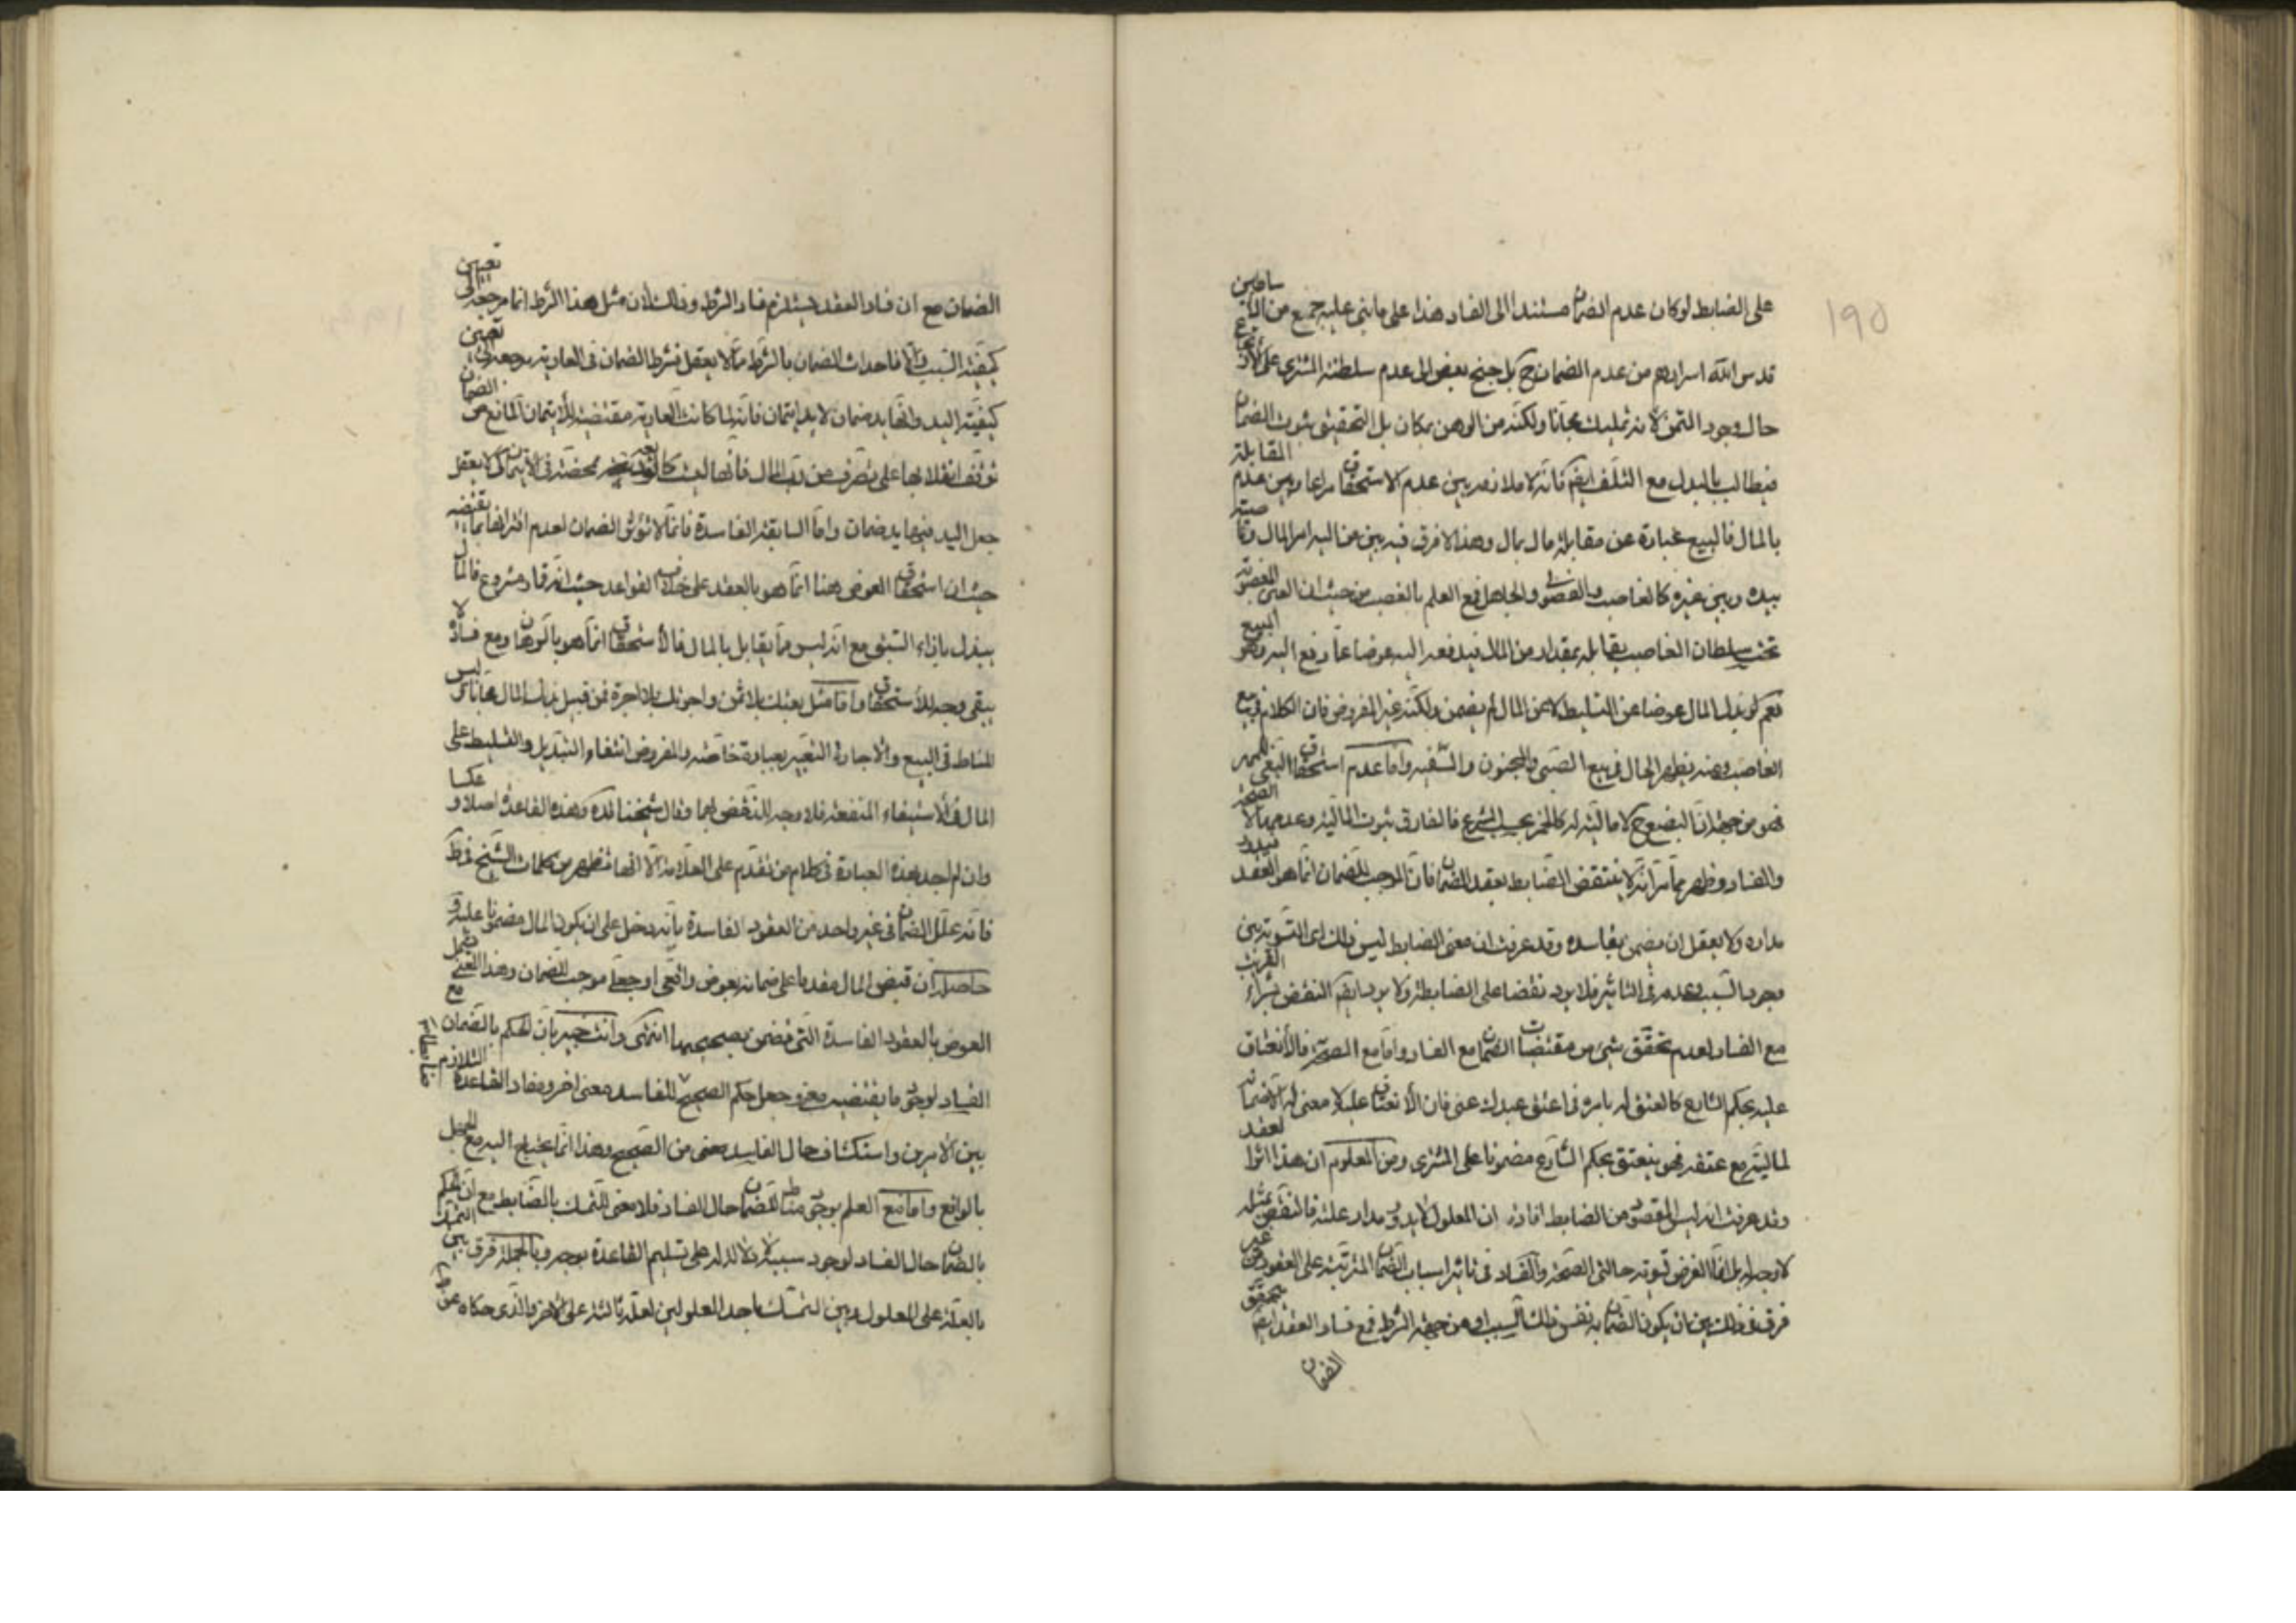 ۱۹۵
على الضابط لوكان عدم الضمان مستندا الى الفساد هذا على ما بنى عليه جمع من الاساطين
قدس الله اسرارهم من عدم الضمان ح بل جنح بعض الى عدم سلطنة المشترى على
حال وجود الثمن لانه تمليك مجانا ولكنه من الوهن بمكان بل التحقيق ثبوت الضمان
فيطالب بالبدل مع التلف ايضا فانه لا ملازمه بين عدم الاستحقاق وبين عدم المقابلة
بالمال فالبيع عبارة عن مقابلة مال بمال وهذا لا فرق فيه بين من اليه امر المال
بيده وبين غيره كالغاصب والفضولى والجاهل فمع العلم بالغصب من حيث ان العين المغصوبة
تحت سلطان الغاصب يقابله بمقدار من المال فيدفعه اليه عوضا عما دفع اليه وهو البيع
نعم لو بذل المال عوضا عن التسليط لا عن المال لم يضمن ولكنه غير المفروض فان الكلام فى بيع
الغاصب ومنه يظهر الحال فى بيع الصبى والمجنون والسفيه واما عدم استحقاق البغى للمهر
فهو من جهة ان البضع ح لا مالية له كالخمر بحسب الشرع فالفارق ثبوت المالية وعدمها لا الصحة
والفساد وظهر مما مر انه لا ينتقض الضابط بعقد الضمان فان الموجب للضمان انما هو العقد فيدور
مداره ولا يعقل ان يضمن بفاسده وقد عرفت ان معنى الضابط ليس ذلك اى التسوية بين
وجود السبب وعدمه فى التاثير فلا يرد نقضا على الضابطة ولا يرد ايضا النقض بشراء القريب
مع الفساد لعدم تحقق شئ من مقتضيات الضمان مع الفساد واما مع الصحة فالانعتاق
عليه بحكم الشارع كالعتق له بامره فى اعتق عبدك عنى فان الانعتاق عليه لا معنى له الا ضمانه
لماليته مع عتقه فهو ينعتق بحكم الشارع مضمونا على المشترى ومن المعلوم ان هذا اثر العقد
وقد عرفت انه ليس المقصود من الضابط افادة ان المعلول لا يدور مدار علته فالنقض بمثله
لا وجه له بل انما الغرض تسوية حالتى الصحة والفساد فى تاثير اسباب الضمان المترتبة على العقود من غير
فرق فى ذلك بين ان يكون الضمان به نفس ذلك السبب او من جهة الشرط فمع فساد العقد ايضا يتحقق
الضمان
الضمان مع ان فساد العقد يستلزم فساد الشرط وذلك لان مثل هذا الشرط انما مرجعه الى تعيين
كيفية السبب والا فاحداث الضمان بالشرط مما لا يعقل فشرط الضمان فى العارية مرجعه الى تعيين
كيفية اليد وانها يد ضمان لا يد ايتمان فانه لما كانت العارية مقتضية للايتمان المانع من الضمان
توقف انقلابها على تصرف من رب المال فانها ليست كالوديعة محضة فى الايتمان كى لا يعقل
جعل اليد فيها يد ضمان واما السابقة الفاسدة فانما لا تؤثر الضمان لعدم اقترانها بما يقتضيه
حيث ان استحقاق العوض هنا انما هو بالعقد على خلاف القواعد حيث انه قمار مشروع فالمال
يبذل بازاء السبق مع انه ليس مما يقابل بالمال فالاستحقاق انما هو بالرهان ومع فساده لا
يبقى وجه للاستحقاق واما مثل بعتك بلا ثمن واجرتك بلا اجرة فمن قبيل بذل المال مجانا ليس
المناط فى البيع والاجارة التعبير بعبارة خاصة والمفروض انتفاء التبديل والتسليط على
المال فى الاستيفاء المنفعة فلا وجه للنقض بهما وقال شيخنا قده وهذه القاعدة اصلا و عكسا
وان لم اجد بهذه العبارة فى كلام من تقدم على العلامة الا انها تظهر من كلمات الشيخ فى ط
فانه علل الضمان فى غير واحد من العقود الفاسدة بانه دخل على ان يكون المال مضمونا عليه و
حاصله ان قبض المال مقدما على ضمانه بعوض واقعى او جعلى موجب للضمان وهذا المعنى يشمل
العوض بالعقود الفاسدة التى تضمن بصحيحها انتهى وانت خبير بان الحكم بالضمان مع
الفساد لوجود ما يقتضيه معنى وجعل حكم الصحيح للفاسد معنى اخر ومفاد القاعدة التلازم
بين الامرين واستكشاف حال الفاسد من الصحيح وهذا انما يحتاج اليه مع الجهل
بالواقع واما مع العلم بوجود مناط للضمان حال الفساد فلا معنى للتمسك بالضابط مع ان الحكم
بالضمان حال الفساد لوجود سببه لا دلالة له على تسليم القاعدة بوجه وبالجملة فرق بين التمسك
بالعلة على المعلول وبين التمسك باحد المعلولين لعلة ثالثة على الاخر والذى حكاه عن